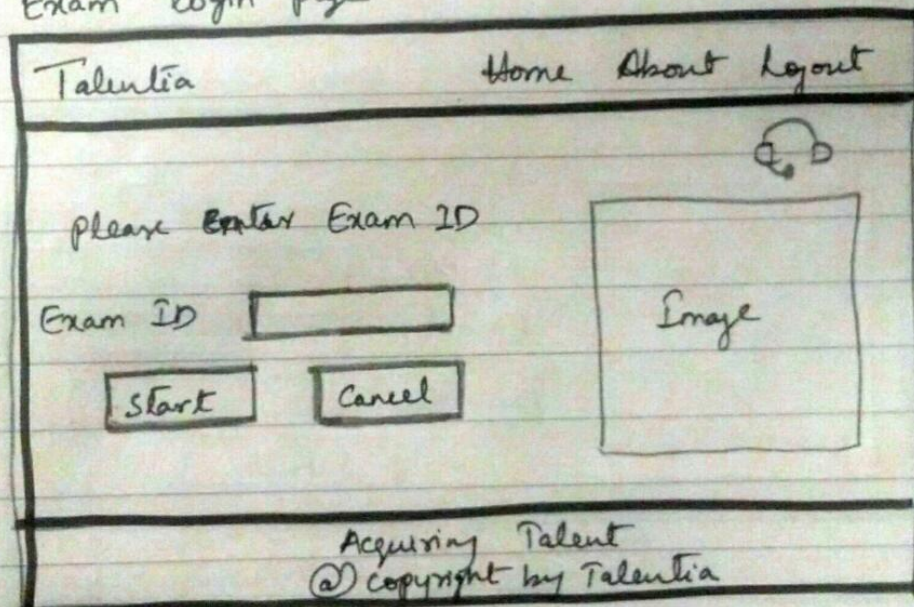 Exam Login page
Talentia Home About Logout
Please Enter Exam ID
Exam ID
Image
Start Cancel
Acquiring Talent
@ copyright by Talentia